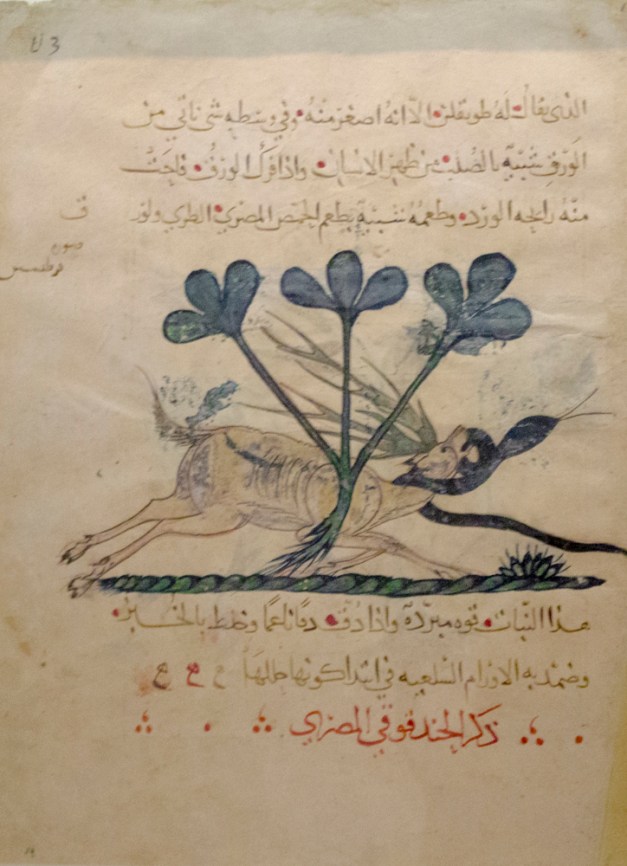 الذى يقال له الا انه اصغر منه وفي وسطه شى ناتي من
الورق شبيه بالصلب من ظهر الانسان واذا فرك الورق فاحت
منه رايحه الورد وطعمه شبيه بطعم الحمص المصري الطري
هذا النبات قوه مبردة واذا دق دقا ناعما وخلط بالخبز
وضمد به الاورام السلعيه في ابتدا كونها حللها
ذكر الحندقوقي المصري